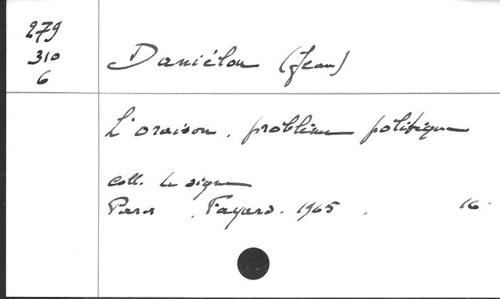 279
310
6
Daniélou (Jean)
L'oraison, problème politique
coll. le signe
Paris, Fayard. 1965. 16